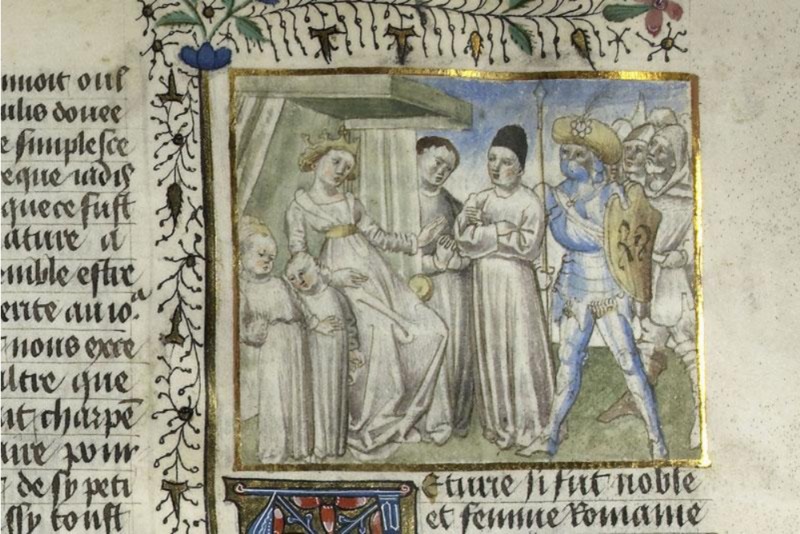 nnoit ou s
ulis douee
e simplesce
eque iadis
que ce fust
ature a
emble estre
erite au io.
nous exce
ultre que
it charpē
aire pour
de sy peti
ssy tost
eturie si fut noble
et femme Romaine